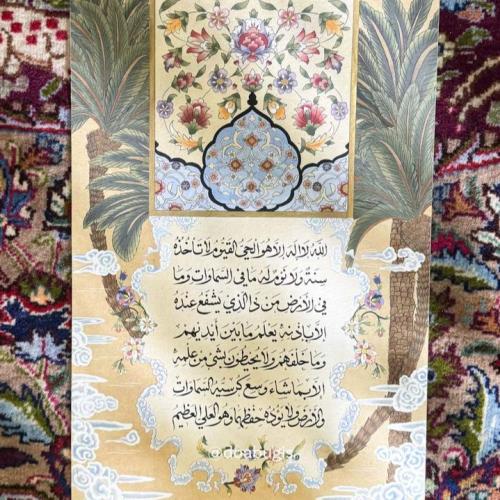 اللَّهُ لَا إِلَٰهَ إِلَّا هُوَ الْحَيُّ الْقَيُّومُ لَا تَأْخُذُهُ
سِنَةٌ وَلَا نَوْمٌ لَهُ مَا فِي السَّمَاوَاتِ وَمَا
فِي الْأَرْضِ مَنْ ذَا الَّذِي يَشْفَعُ عِنْدَهُ
إِلَّا بِإِذْنِهِ يَعْلَمُ مَا بَيْنَ أَيْدِيهِمْ
وَمَا خَلْفَهُمْ وَلَا يُحِيطُونَ بِشَيْءٍ مِنْ عِلْمِهِ
إِلَّا بِمَا شَاءَ وَسِعَ كُرْسِيُّهُ السَّمَاوَاتِ
وَالْأَرْضَ وَلَا يَئُودُهُ حِفْظُهُمَا وَهُوَ الْعَلِيُّ الْعَظِيمُ